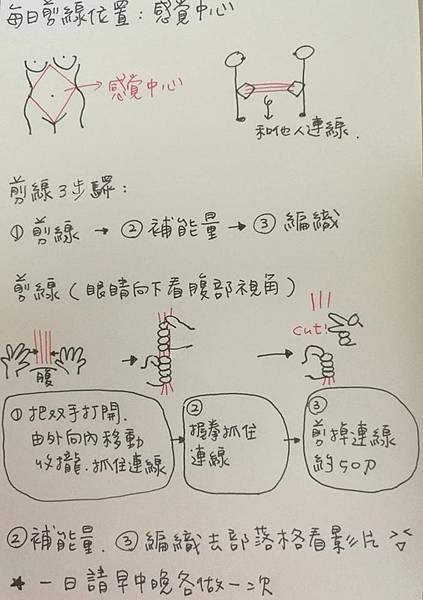 每日剪線位置：感覚中心
感覚中心
和他人連線.
剪線3步驟：
①剪線→②補能量→③編織
剪線(眼睛向下看腹部視角)
cut!
腹
①把双手打開.
由外向內移動
收攏.抓住連線
②
握拳抓住
連線
③
剪掉連線
約50刀
②補能量.③編織去部落格看影片
★一日請早中晚各做一次